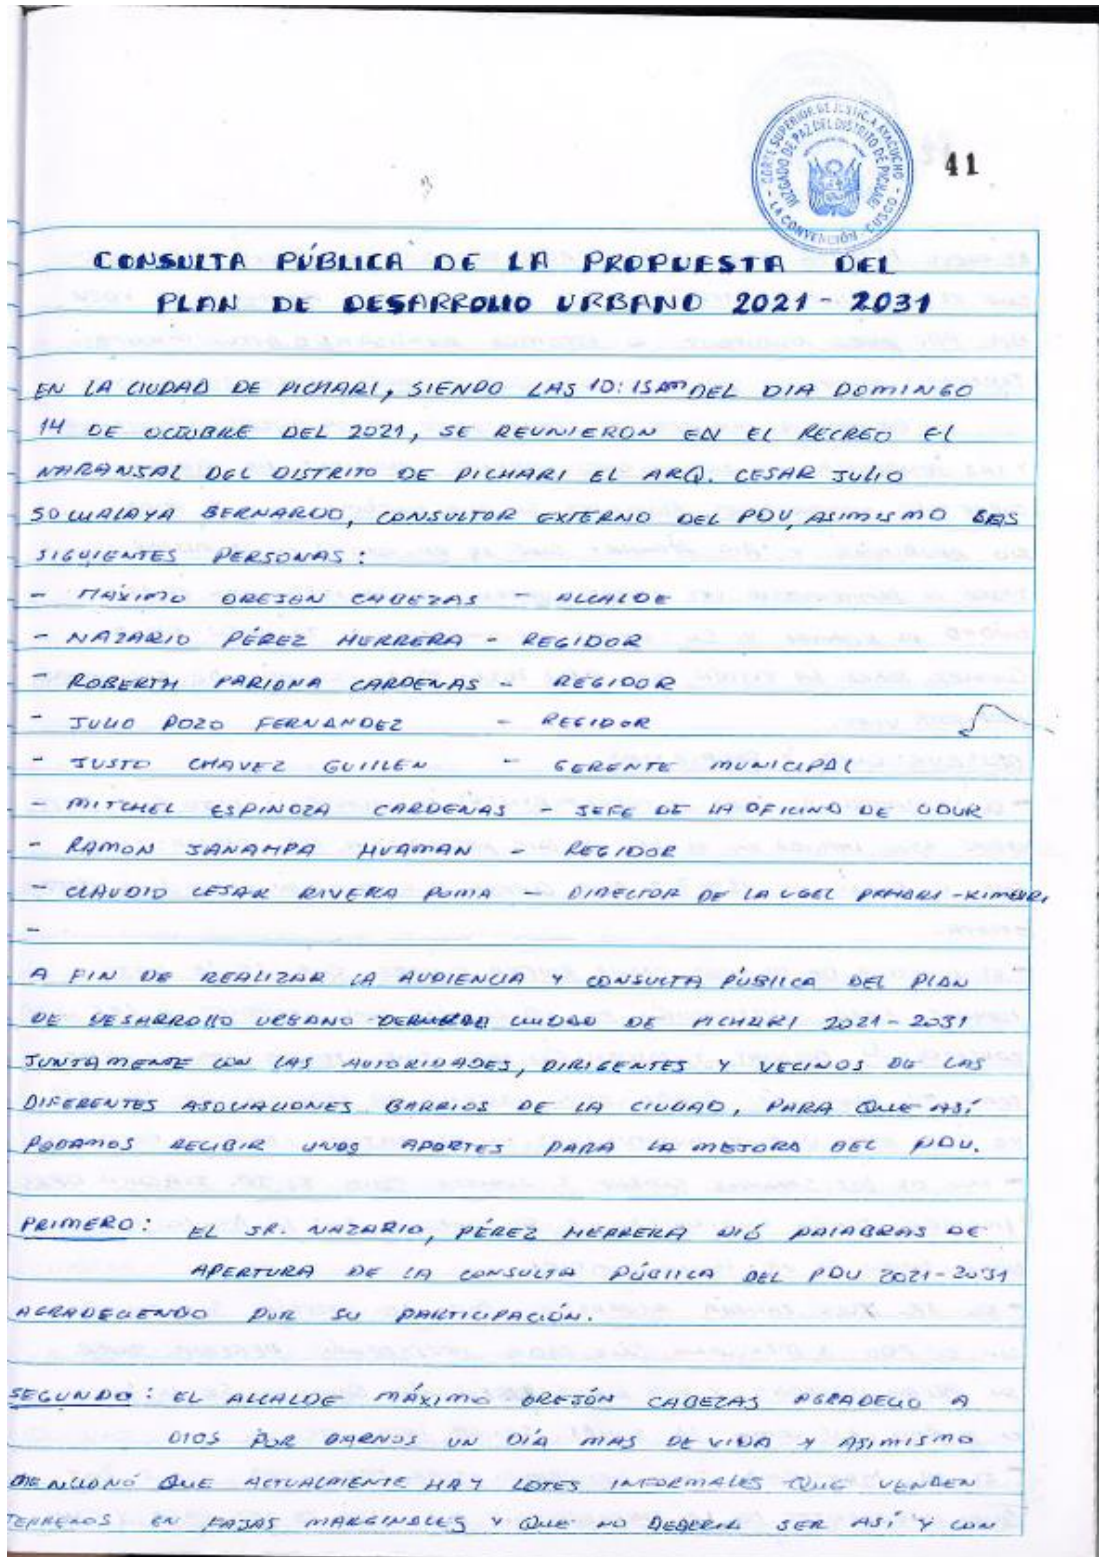 CORTE SUPERIOR DE JUSTICIA AYACUCHO
JUZGADO DE PAZ DEL DISTRITO DE PICHARI
- LA CONVENCIÓN - CUSCO -
41
CONSULTA PÚBLICA DE LA PROPUESTA DEL
PLAN DE DESARROLLO URBANO 2021-2031
EN LA CIUDAD DE PICHARI, SIENDO LAS 10:15AM DEL DIA DOMINGO
14 DE OCTUBRE DEL 2021, SE REUNIERON EN EL RECREO EL
NARANJAL DEL DISTRITO DE PICHARI EL ARQ. CESAR JULIO
SOCUALAYA BERNARDO, CONSULTOR EXTERNO DEL PDU, ASIMISMO
SIGUIENTES PERSONAS:
- MÁXIMO OREJON CABEZAS - ALCALDE
- NAZARIO PÉREZ HERRERA - REGIDOR
- ROBERTH PARIONA CARDENAS - REGIDOR
- JULIO POZO FERNANDEZ - REGIDOR
- JUSTO CHAVEZ GUILLEN - GERENTE MUNICIPAL
- MITCHEL ESPINOZA CARDENAS - JEFE DE LA OFICINO DE ODUR
- RAMON JANAMPA HUAMAN - REGIDOR
- CLAUDIO CESAR RIVERA POMA - DIRECTOR DE LA UGEL PICHARI-KIMBIRI
-
A FIN DE REALIZAR LA AUDIENCIA Y CONSULTA PÚBLICA DEL PLAN
DE DESARROLLO URBANO CIUDAD DE PICHARI 2021-2031
JUNTAMENTE CON LAS AUTORIDADES, DIRIGENTES Y VECINOS DE LAS
DIFERENTES ASOCIACIONES BARRIOS DE LA CIUDAD, PARA QUE ASÍ
PODAMOS RECIBIR UNOS APORTES PARA LA MEJORA DEL PDU.
PRIMERO: EL SR. NAZARIO, PÉREZ HERRERA DIÓ PALABRAS DE
APERTURA DE LA CONSULTA PÚBLICA DEL PDU 2021-2031
AGRADECIENDO POR SU PARTICIPACIÓN.
SEGUNDO: EL ALCALDE MÁXIMO OREJÓN CABEZAS AGRADECIO A
DIOS POR DARNOS UN DÍA MAS DE VIDA Y ASIMISMO
MENCIONÓ QUE ACTUALMENTE HAY LOTES INFORMALES QUE VENDEN
TERRENOS EN FAJAS MARGINALES Y QUE NO DEBERIA SER ASÍ Y CON